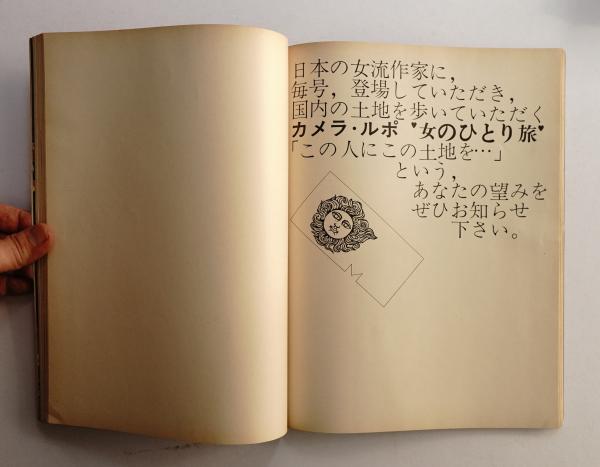 日本の女流作家に,
毎号, 登場していただき,
国内の土地を歩いていただく
カメラ・ルポ ♥女のひとり旅♥
「この人にこの土地を…」
という,
あなたの望みを
ぜひお知らせ
下さい。